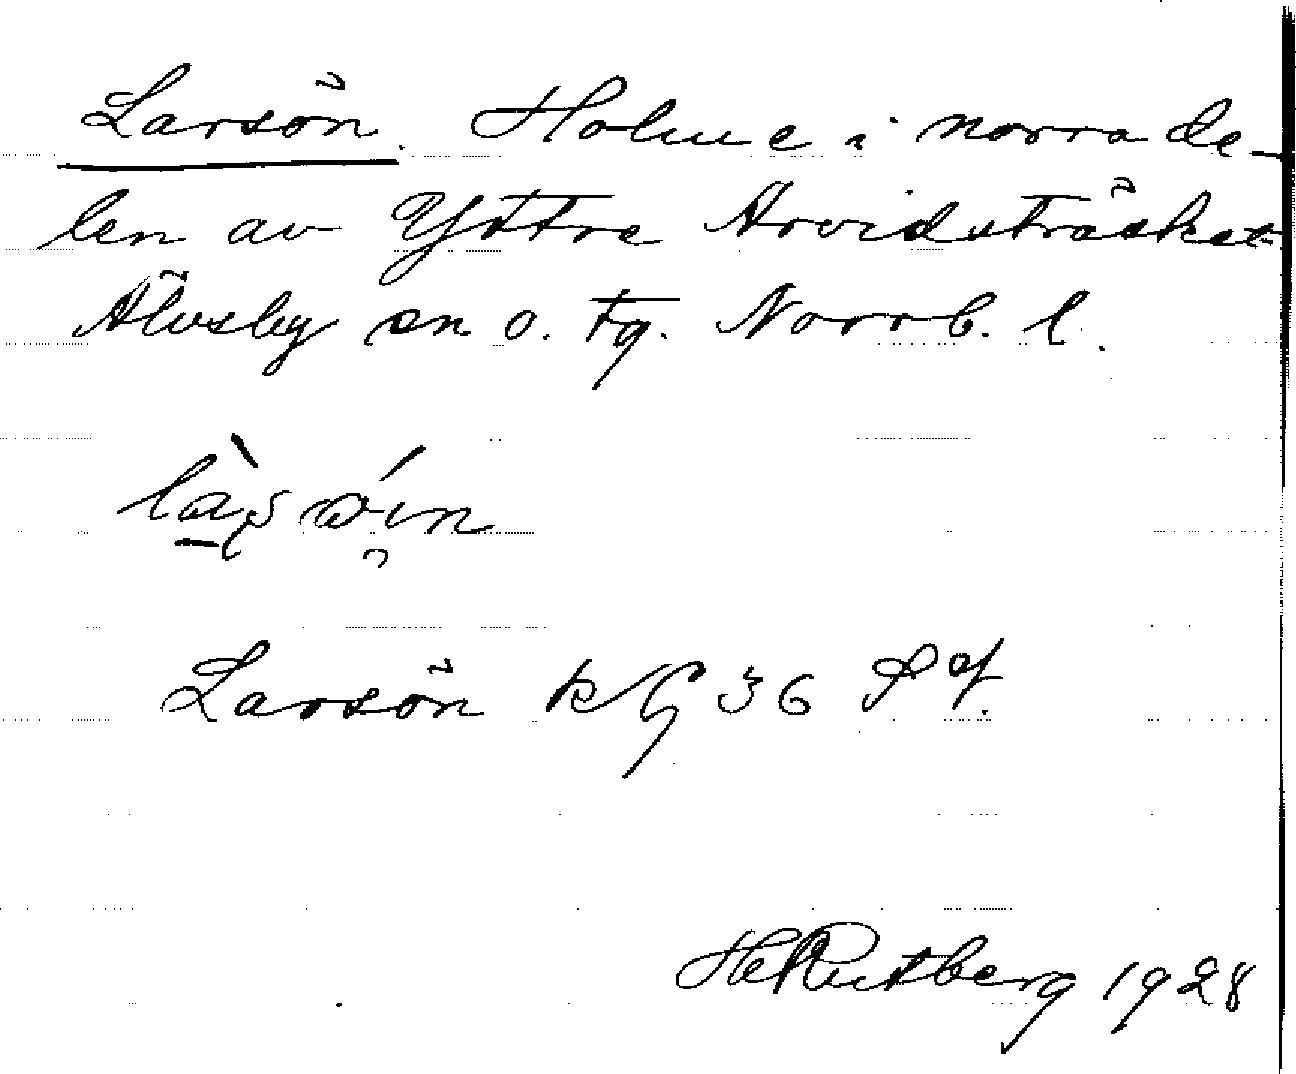 Larsön. Holme i norra de-
len av Yttre Arvidsträsket
Älvsby sn o. tg. Norrb. l.
Larsön k G 36 Sf.
H Rutberg 1928